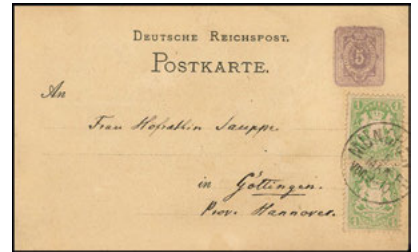 DEUTSCHE REICHSPOST.
POSTKARTE.
5
An
Frau Hofräthin Sauppe
in Göttingen.
Prov. Hannover.
1
1